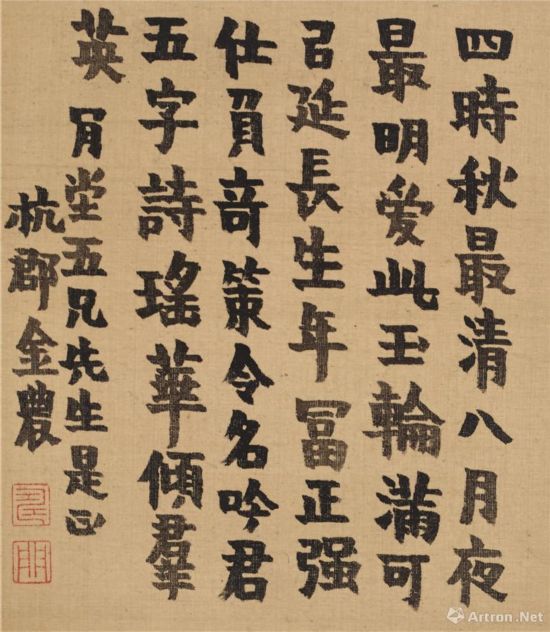 四時秋最清八月夜
最明愛此玉輪滿可
㠯延長生年冨正强
仕負竒策令名吟君
五字詩瑤華傾羣
英 肎堂五兄先生是正
杭郡金農
Artron.Net